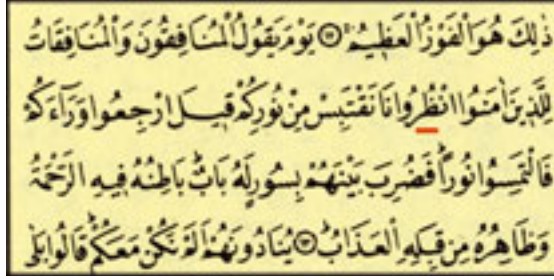 ذٰلِكَ هُوَ الْفَوْزُ الْعَظِيمُۚ ﴿١٢﴾ يَوْمَ يَقُولُ الْمُنَافِقُونَ وَالْمُنَافِقَاتُ
لِلَّذِينَ اٰمَنُوا انْظُرُونَا نَقْتَبِسْ مِنْ نُورِكُمْ قِيلَ ارْجِعُوا وَرَٓاءَكُمْ
فَالْتَمِسُوا نُورًاۜ فَضُرِبَ بَيْنَهُمْ بِسُورٍ لَهُ بَابٌۜ بَاطِنُهُ فِيهِ الرَّحْمَةُ
وَظَاهِرُهُ مِنْ قِبَلِهِ الْعَذَابُۜ ﴿١٣﴾ يُنَادُونَهُمْ اَلَمْ نَكُنْ مَعَكُمْۜ قَالُوا بَلٰى